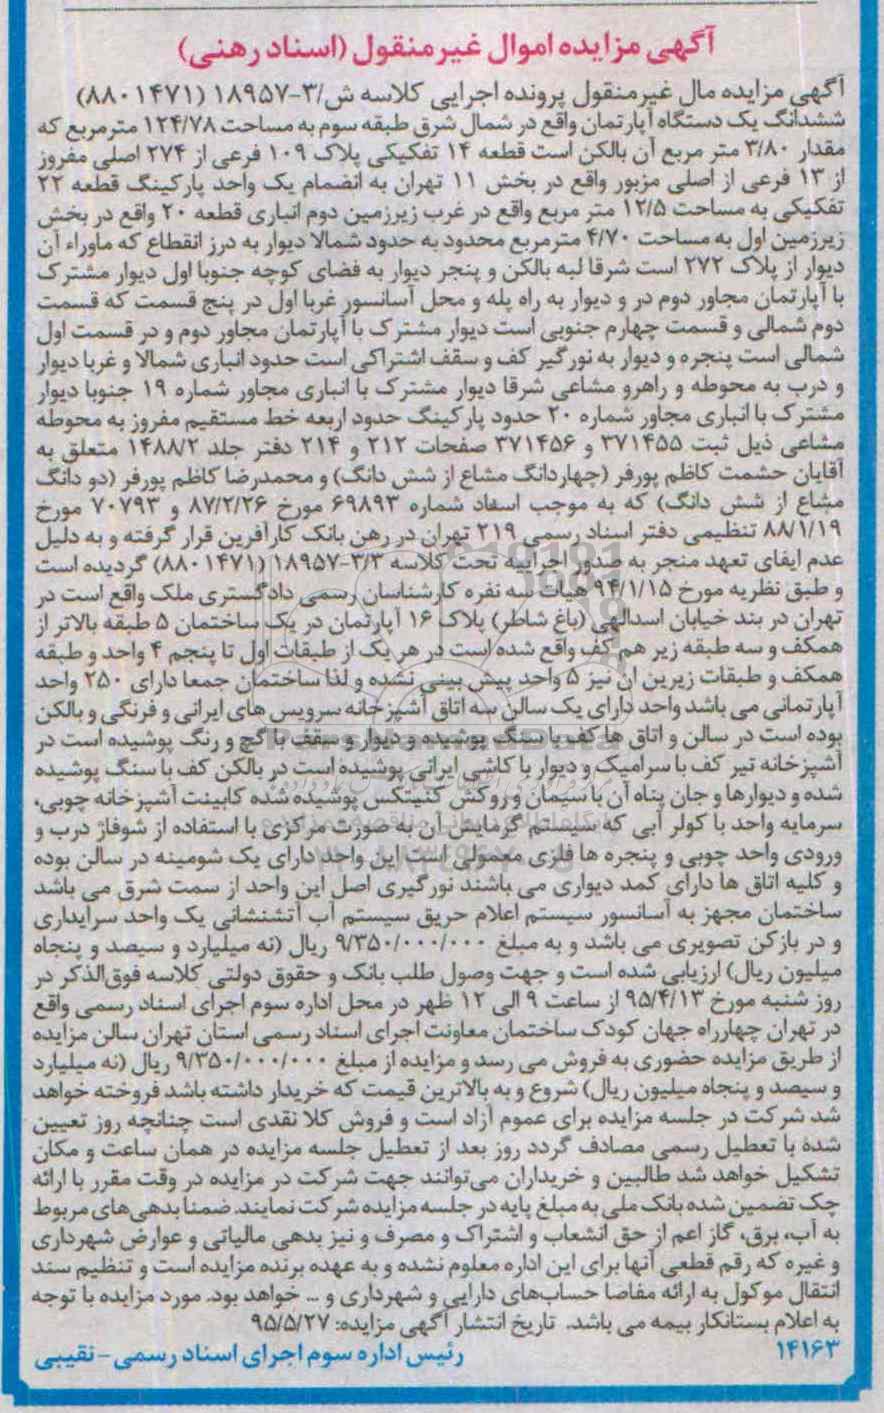 آگهی مزایده اموال غیرمنقول (اسناد رهنی)
آگهی مزایده مال غیرمنقول پرونده اجرایی کلاسه ش/۳-۱۸۹۵۷ (۸۸۰۱۴۷۱)
ششدانگ یک دستگاه آپارتمان واقع در شمال شرق طبقه سوم به مساحت ۱۲۴/۷۸ مترمربع که
مقدار ۳/۸۰ متر مربع آن بالکن است قطعه ۱۴ تفکیکی پلاک ۱۰۹ فرعی از ۲۷۴ اصلی مفروز
از ۱۳ فرعی از اصلی مزبور واقع در بخش ۱۱ تهران به انضمام یک واحد پارکینگ قطعه ۲۲
تفکیکی به مساحت ۱۲/۵ متر مربع واقع در غرب زیرزمین دوم انباری قطعه ۲۰ واقع در بخش
زیرزمین اول به مساحت ۴/۷۰ مترمربع محدود به حدود شمالا دیوار به درز انقطاع که ماوراء آن
دیوار از پلاک ۲۷۲ است شرقا لبه بالکن و پنجر دیوار به فضای کوچه جنوبا اول دیوار مشترک
با آپارتمان مجاور دوم در و دیوار به راه پله و محل آسانسور غربا اول در پنج قسمت که قسمت
دوم شمالی و قسمت چهارم جنوبی است دیوار مشترک با آپارتمان مجاور دوم و در قسمت اول
شمالی است پنجره و دیوار به نورگیر کف و سقف اشتراکی است حدود انباری شمالا و غربا دیوار
و درب به محوطه و راهرو مشاعی شرقا دیوار مشترک با انباری مجاور شماره ۱۹ جنوبا دیوار
مشترک با انباری مجاور شماره ۲۰ حدود پارکینگ حدود اربعه خط مستقیم مفروز به محوطه
مشاعی ذیل ثبت ۳۷۱۴۵۵ و ۳۷۱۴۵۶ صفحات ۲۱۲ و ۲۱۴ دفتر جلد ۱۴۸۸/۲ متعلق به
آقایان حشمت کاظم پورفر (چهاردانگ مشاع از شش دانگ) و محمدرضا کاظم پورفر (دو دانگ
مشاع از شش دانگ) که به موجب اسناد شماره ۶۹۸۹۳ مورخ ۸۷/۲/۲۶ و ۷۰۷۹۳ مورخ
۸۸/۱/۱۹ تنظیمی دفتر اسناد رسمی ۲۱۹ تهران در رهن بانک کارآفرین قرار گرفته و به دلیل
عدم ایفای تعهد منجر به صدور اجراییه تحت کلاسه ۳/۳-۱۸۹۵۷ (۸۸۰۱۴۷۱) گردیده است
و طبق نظریه مورخ ۹۴/۱/۱۵ هیات سه نفره کارشناسان رسمی دادگستری ملک واقع است در
تهران در بند خیابان اسدالهی (باغ شاطر) پلاک ۱۶ آپارتمان در یک ساختمان ۵ طبقه بالاتر از
همکف و سه طبقه زیر هم کف واقع شده است در هر یک از طبقات اول تا پنجم ۴ واحد و طبقه
همکف و طبقات زیرین ان نیز ۵ واحد پیش بینی نشده و لذا ساختمان جمعا دارای ۲۵۰ واحد
آپارتمانی می باشد واحد دارای یک سالن سه اتاق آشپزخانه سرویس های ایرانی و فرنگی و بالکن
بوده است در سالن و اتاق ها کف با سنگ پوشیده و دیوار و سقف با گچ و رنگ پوشیده است در
آشپزخانه تیر کف با سرامیک و دیوار با کاشی ایرانی پوشیده است در بالکن کف با سنگ پوشیده
شده و دیوارها و جان پناه آن با سیمان و روکش کنیتکس پوشیده شده کابینت آشپزخانه چوبی،
سرمایه واحد با کولر آبی که سیستم گرمایش آن به صورت مرکزی با استفاده از شوفاژ درب و
ورودی واحد چوبی و پنجره ها فلزی معمولی است این واحد دارای یک شومینه در سالن بوده
و کلیه اتاق ها دارای کمد دیواری می باشند نورگیری اصل این واحد از سمت شرق می باشد
ساختمان مجهز به آسانسور سیستم اعلام حریق سیستم آب آتشنشانی یک واحد سرایداری
و در بازکن تصویری می باشد و به مبلغ ۹/۳۵۰/۰۰۰/۰۰۰ ریال (نه میلیارد و سیصد و پنجاه
میلیون ریال) ارزیابی شده است و جهت وصول طلب بانک و حقوق دولتی کلاسه فوق‌الذکر در
روز شنبه مورخ ۹۵/۴/۱۳ از ساعت ۹ الی ۱۲ ظهر در محل اداره سوم اجرای اسناد رسمی واقع
در تهران چهارراه جهان کودک ساختمان معاونت اجرای اسناد رسمی استان تهران سالن مزایده
از طریق مزایده حضوری به فروش می رسد و مزایده از مبلغ ۹/۳۵۰/۰۰۰/۰۰۰ ریال (نه میلیارد
و سیصد و پنجاه میلیون ریال) شروع و به بالاترین قیمت که خریدار داشته باشد فروخته خواهد
شد شرکت در جلسه مزایده برای عموم آزاد است و فروش کلا نقدی است چنانچه روز تعیین
شده با تعطیل رسمی مصادف گردد روز بعد از تعطیل جلسه مزایده در همان ساعت و مکان
تشکیل خواهد شد طالبین و خریداران می‌توانند جهت شرکت در مزایده در وقت مقرر با ارائه
چک تضمین شده بانک ملی به مبلغ پایه در جلسه مزایده شرکت نمایند. ضمنا بدهی‌های مربوط
به آب، برق، گاز اعم از حق انشعاب و اشتراک و مصرف و نیز بدهی مالیاتی و عوارض شهرداری
و غیره که رقم قطعی آنها برای این اداره معلوم نشده و به عهده برنده مزایده است و تنظیم سند
انتقال موکول به ارائه مفاصا حساب‌های دارایی و شهرداری و ... خواهد بود. مورد مزایده با توجه
به اعلام بستانکار بیمه می باشد. تاریخ انتشار آگهی مزایده: ۹۵/۵/۲۷
۱۴۱۶۳ رئیس اداره سوم اجرای اسناد رسمی - نقیبی